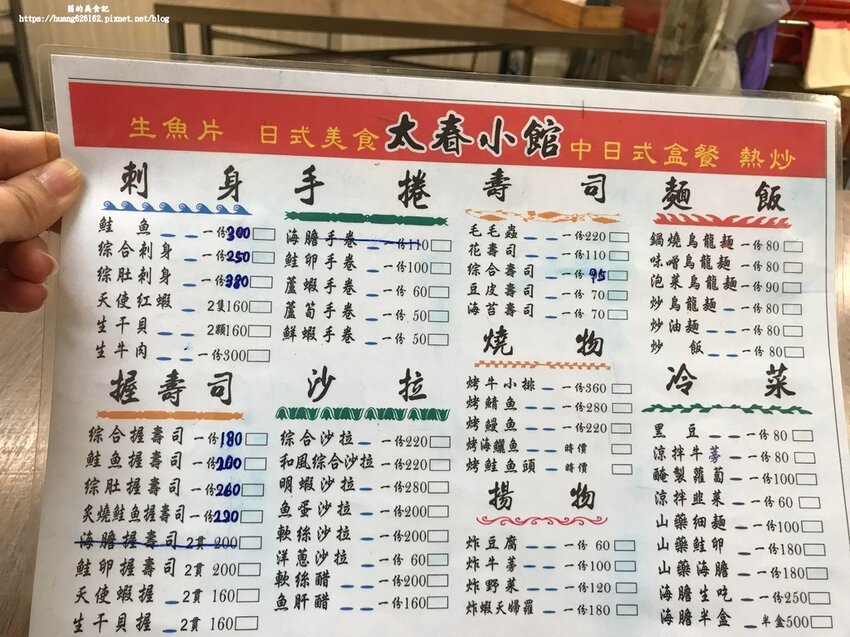 舊的美食記
https://huang626162.pixnet.net/blog
生魚片 日式美食 太春小館 中日式盒餐 熱炒
刺身
鮭魚 一份300
綜合刺身 一份250
綜肚刺身 一份380
天使紅蝦 2隻160
生干貝 2顆160
生牛肉 一份300
手捲
海膽手卷 一份110
鮭卵手卷 一份100
蘆蝦手卷 一份60
蘆筍手卷 一份50
鮮蝦手卷 一份50
壽司
毛毛蟲 一份220
花壽司 一份110
綜合壽司 一份95
豆皮壽司 一份70
海苔壽司 一份70
麵飯
鍋燒烏龍麵 一份80
味噌烏龍麵 一份80
泡菜烏龍麵 一份90
炒烏龍麵 一份80
炒油麵 一份80
炒飯 一份80
握壽司
綜合握壽司 一份180
鮭魚握壽司 一份200
綜肚握壽司 一份260
炙燒鮭魚握壽司 一份220
海膽握壽司 2貫200
鮭卵握壽司 2貫200
天使蝦握 2貫160
生干貝握 2貫160
沙拉
綜合沙拉 一份220
和風綜合沙拉 一份220
明蝦沙拉 一份280
魚蛋沙拉 一份200
軟絲沙拉 一份220
洋蔥沙拉 一份120
軟絲醋 一份220
魚肝醋 一份160
燒物
烤牛小排 一份360
烤鯖魚 一份280
烤鰻魚 一份220
烤海鱺魚 時價
烤鮭魚頭 時價
揚物
炸豆腐 一份60
炸牛蒡 一份100
炸野菜 一份120
炸蝦天婦羅 一份180
冷菜
黑豆 一份80
涼拌牛蒡 一份80
醃製蘿蔔 一份100
涼拌韭菜 一份60
山藥細麵 一份100
山藥鮭卵 一份180
山藥海膽 一份180
海膽生吃 一份250
海膽半盒 半盒500